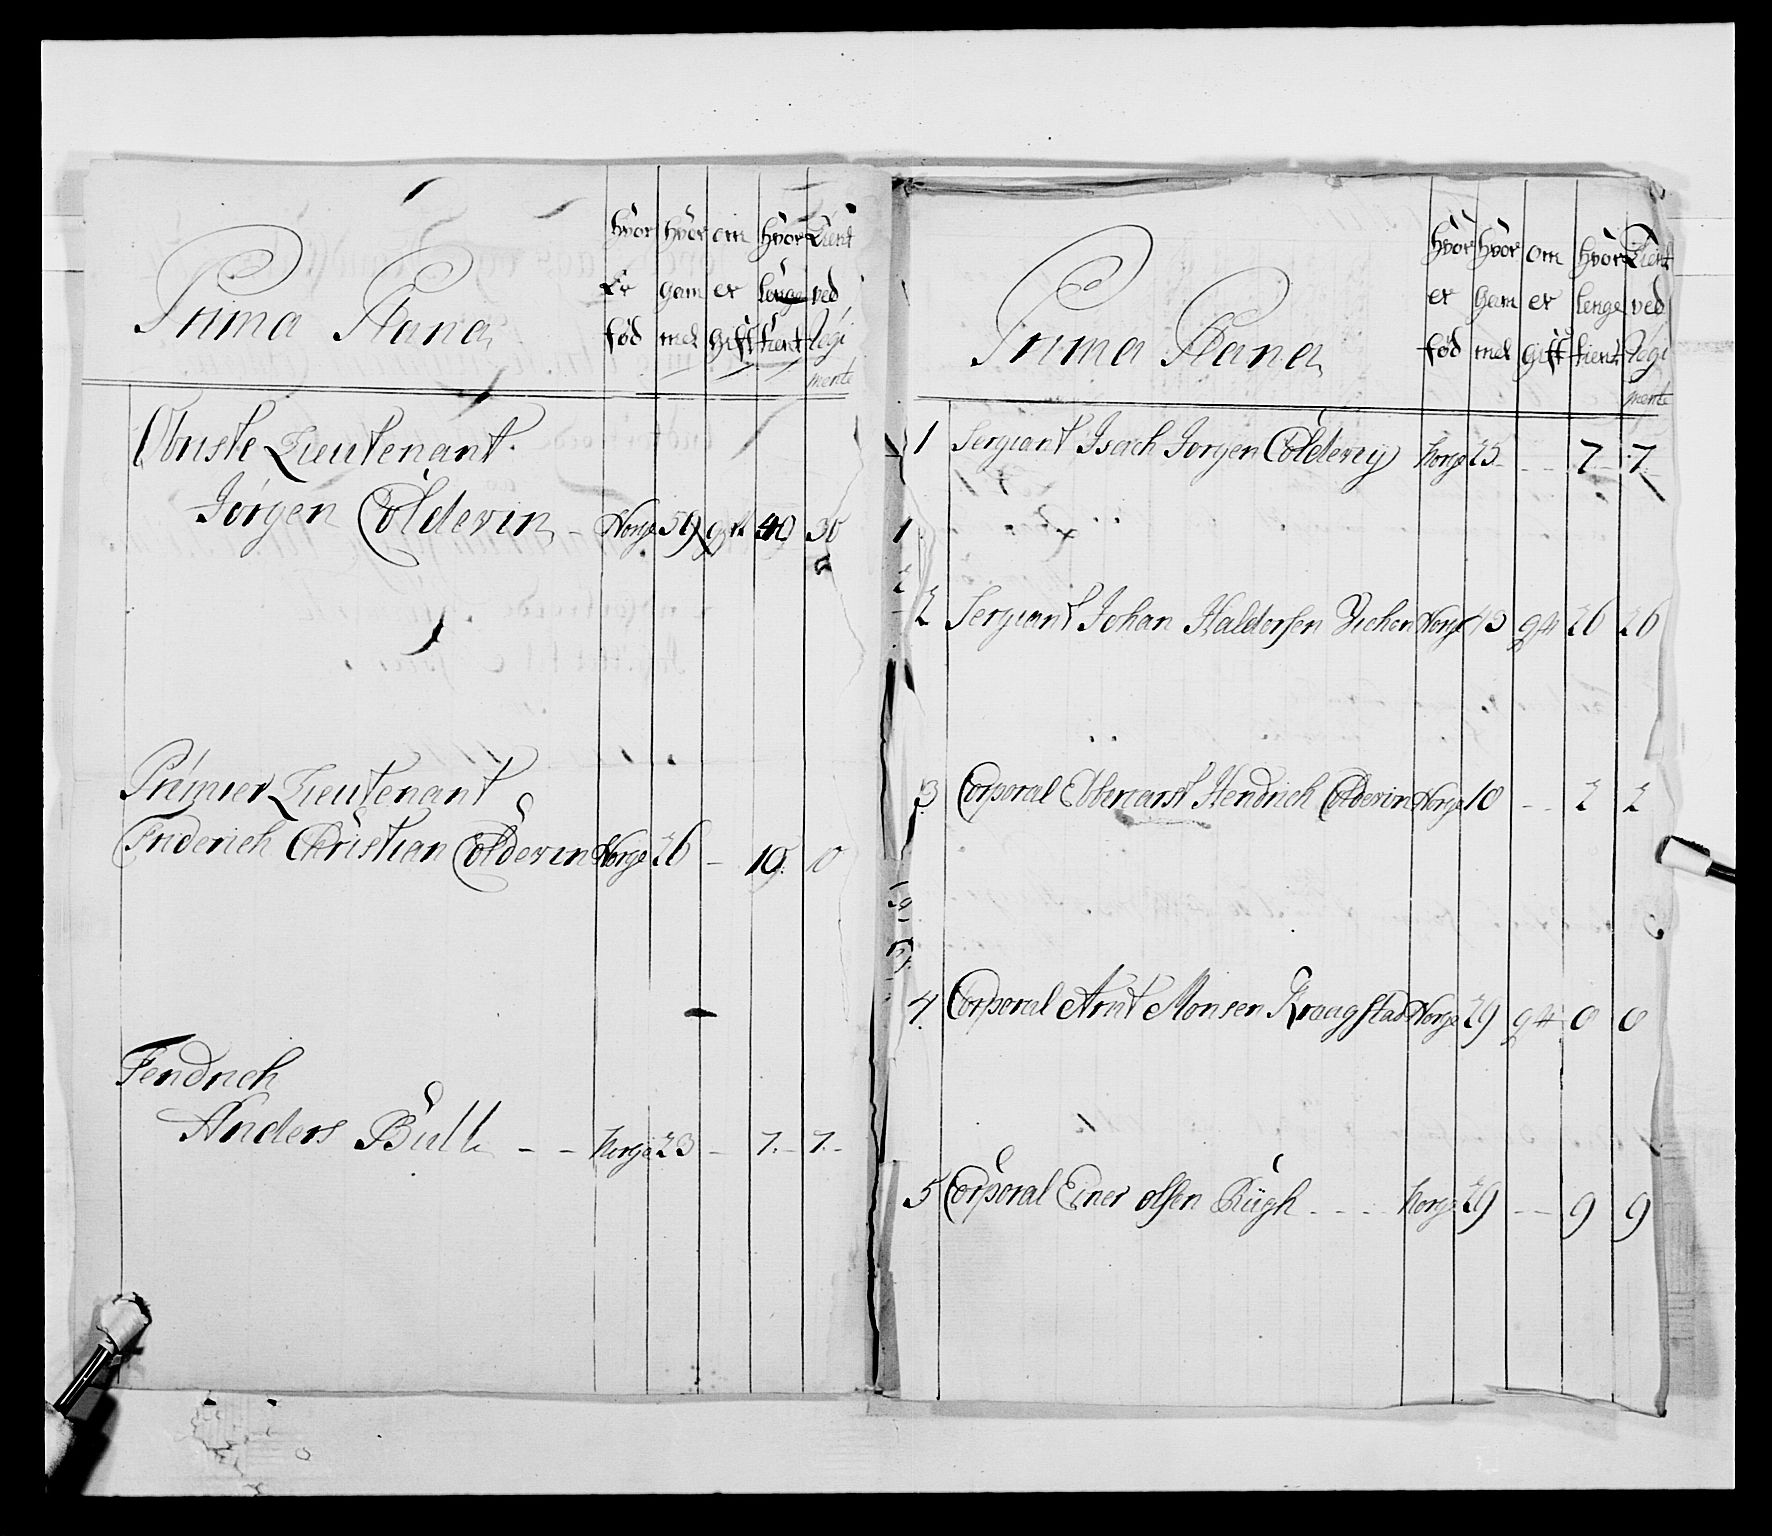 Prima Plana
hvor Er fød
hvor gam mel
om er gift
hvor lenge tient
Tient ved Regi mente
Obriste Lieutenant
Jørgen Colderin - Norge 59 gift 40 30
Premier Lieutenant
Friderich Christian Colderin Norge 26 - 10 10
Fendrich
Anders Bull - - Norge 23 - 7 - 7 -
Prima Plana
hvor er fød
hvor gam mel
om er gift
hvor lenge tient
Tient ved Regi mente
1 Sergiant Isach Jorgen Coldevin Norge 25 - - 7 7
2 Sergiant Johan Haldorsen Norge 43 gift 26 26
3 Corporal Ebberarst Hendrich Colderin Norge 10 - - 2 2
4. Corporal Arnt Monsen Kraagstad Norge 29 gift 0 0
5 Corporal Einer olsen Rügh - - - - Norge 29 - - 9 9